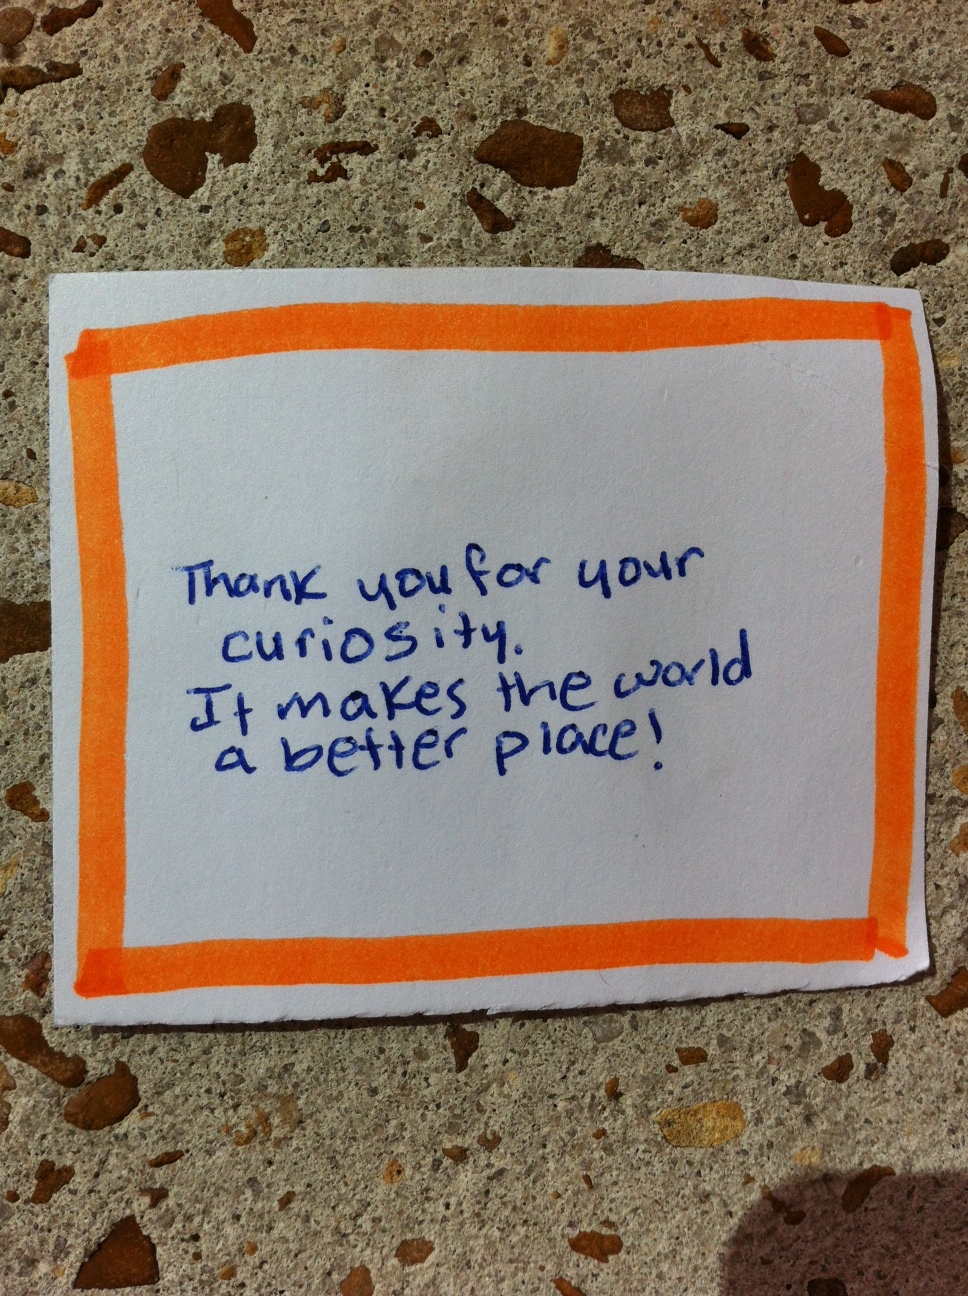 Thank you for your
curiosity.
It makes the world
a better place!